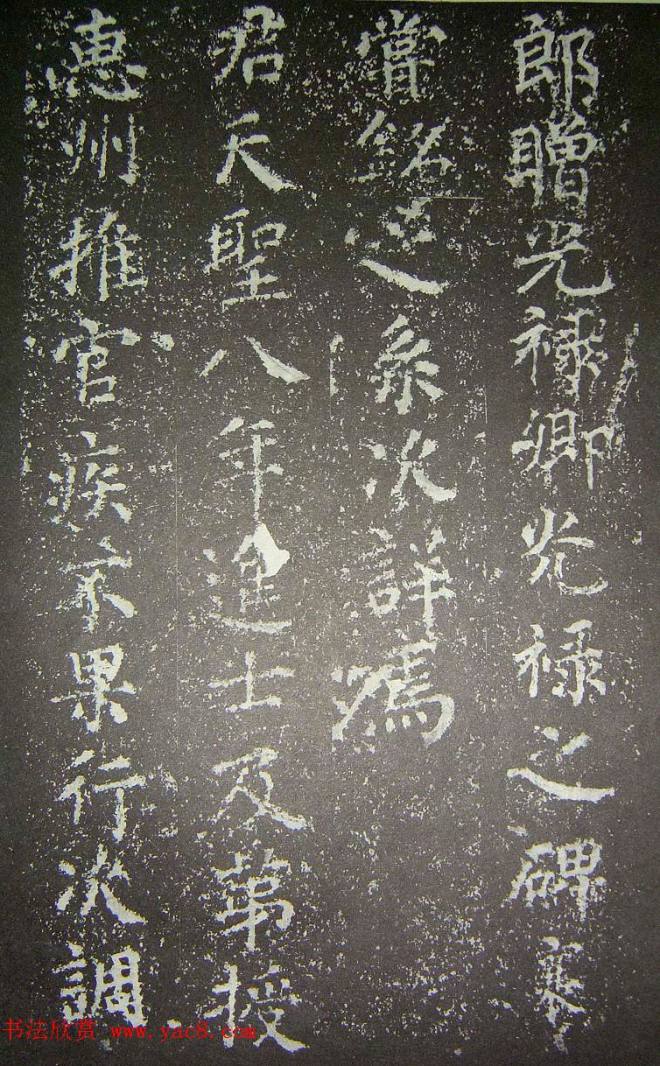 郎贈光禄卿光禄之碑宲
嘗銘之糸次詳焉
君天聖八年進士及第授
惠州推官疾不果行次調
书法欣赏 www.yac8.com